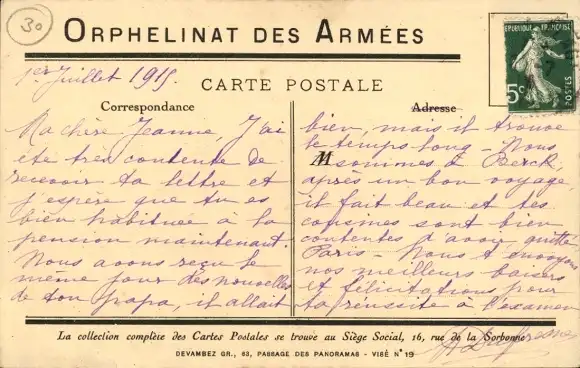 30
ORPHELINAT DES ARMÉES
1er Juillet 1915.
CARTE POSTALE
Correspondance
Adresse
RÉPUBLIQUE FRANÇAISE
5c
POSTES
Ma chère Jeanne, J'ai
été très contente de
recevoir ta lettre et
j'espère que tu es
bien habituée à la
pension maintenant.
Nous avons reçu le
même jour des nouvelles
de ton papa, il allait
bien, mais il trouve
le temps long - Nous
M
sommes à Berck,
après un bon voyage,
il fait beau et tes
cousines sont bien
contentes d'avoir quitté
Paris - Nous t'envoyons
nos meilleurs baisers
et félicitations pour
ta réussite à l'examen
La collection complète des Cartes Postales se trouve au Siège Social, 16, rue de la Sorbonne
DEVAMBEZ GR., 63, PASSAGE DES PANORAMAS - VISÉ N° 19